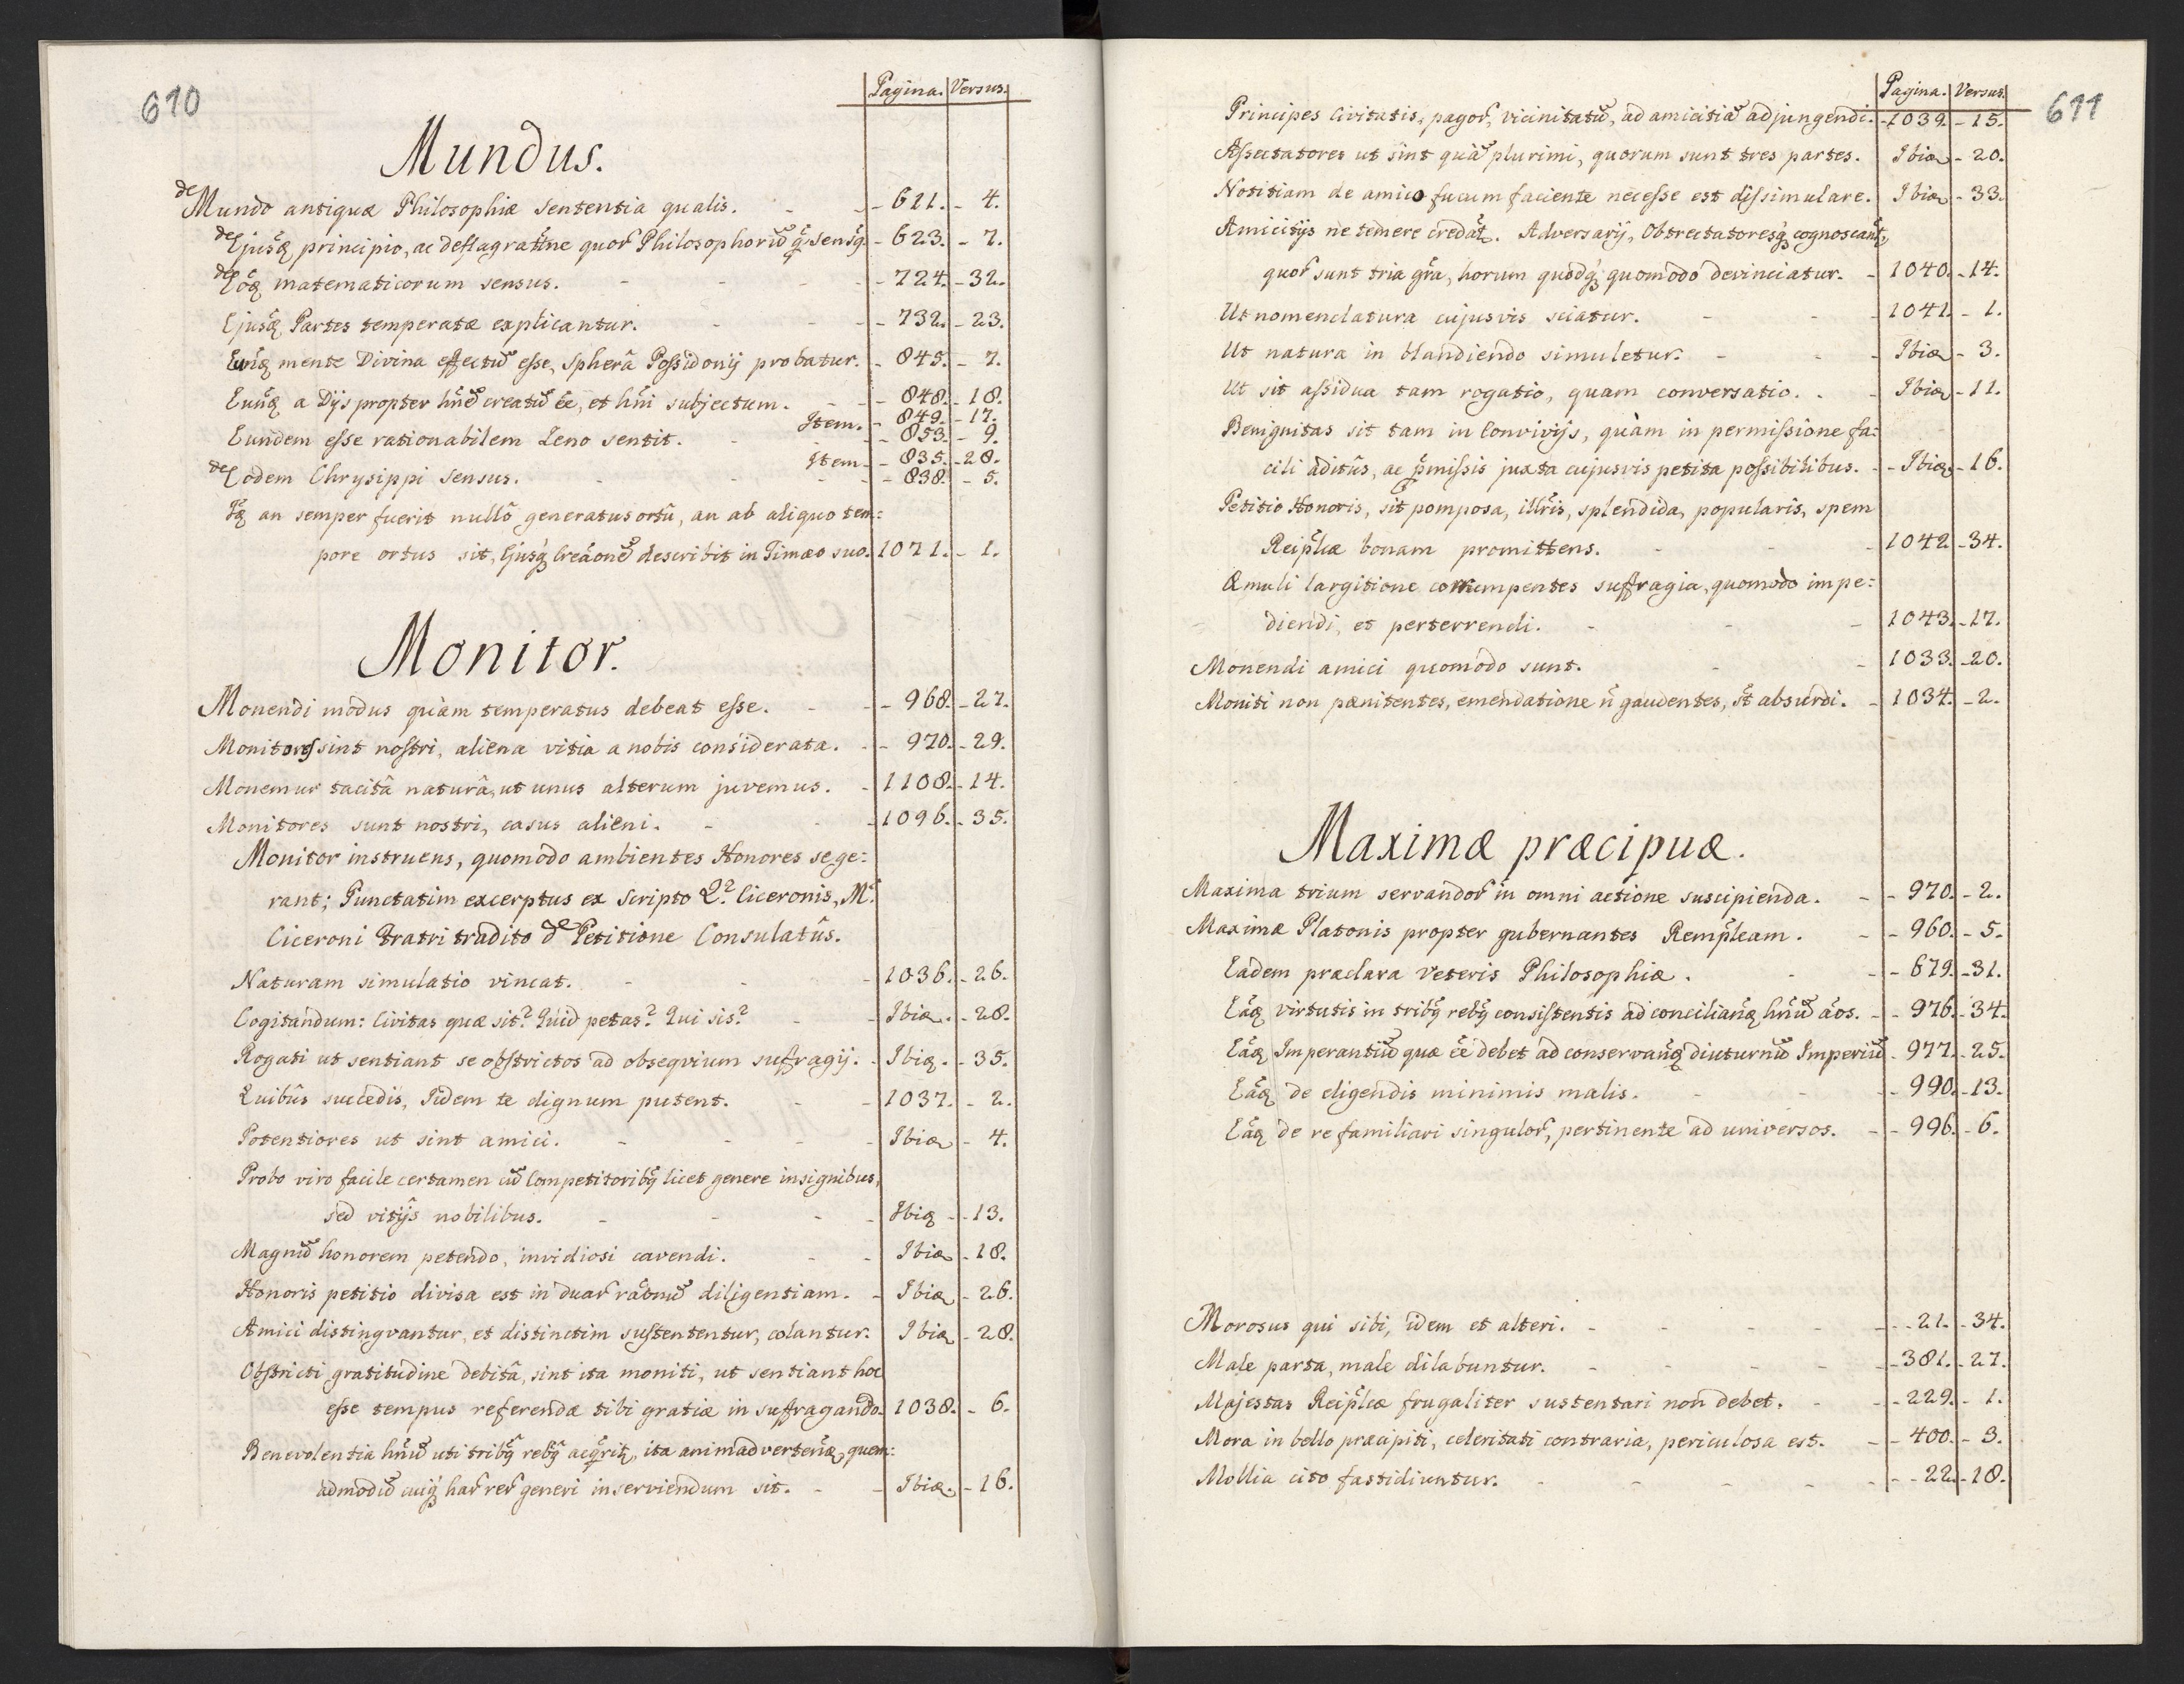 610
Pagina. Versus.
Mundus.
de Mundo antiquæ Philosophiæ sententia qualis. - - 621. - 4.
principio, ac deflagratne quor Philosophoru - 623. - 7.
matematicorum sensus. - - - 724. - 32.
Partes temperatæ explicantur. - - 732. - 23.
mente Divina effectu esse, Spherâ Possidonij probatur. - 845. - 7.
a Dijs propter creatu et subjectum. - - 848. - 18.
Item. - 849. - 17.
Eundem esse rationabilem Zeno sentit. - - 853. - 9.
Item - 835. - 28.
de Eodem Chrysippi sensus. - - - 838. - 5.
an semper fuerit nullô generatus ortû, an ab aliquo tem:
pore ortus sit, describit in Timæo suo. 1071. - 1.
Monitor.
Monendi modus quàm temperatus debeat esse. - - 968. - 27.
Monitores sint nostri, aliena vitia a nobis considerata. - - 970. - 29.
Monemur tacitâ naturâ, ut unus alterum juvemus. - 1108. - 14.
Monitores sunt nostri, casus alieni. - - 1096. - 35.
Monitor instruens, quomodo ambientes Honores se ge:
rant; Punctatim excerptus ex scripto Q. Ciceronis, M.
Ciceroni Fratri tradito de Petitione Consulatûs.
Naturam simulatio vincat. - - - 1036. - 26.
Cogitandum: Civitas quæ sit? Quid petas? Qui sis? - - Ibid. - 28.
Rogati ut sentiant se obstrictos ad obseqvium suffragij. - Ibid. - 35.
Quibûs succedis, Iidem te dignum putent. - - 1037. - 2.
Potentiores ut sint amici. - - - - Ibid - 4.
Probo viro facile certamen cu Competitoribq licet genere insignibus,
sed vitijs nobilibus. - - - - Ibid - 13.
Magnu honorem petendo, invidiosi cavendi. - - Ibid - 18.
Honoris petitio divisa est in duar diligentiam. - Ibid - 26.
Amici distingvantur, et distinctim sustententur, colantur. Ibid - 28.
Obstricti gratitudine debitâ, sint ita moniti, ut sentiant hoc
esse tempus referendæ tibi gratiæ in suffragando. 1038. - 6.
Benevolentia uti tribq rebq ita quem:
admodu har rer generi inserviendum sit. - - Ibid. - 16.
611
Pagina. Versus.
Principes Civitatis, pagor, vicinitatu, ad amicitia adjungendi. - 1039. - 15.
Assectatores ut sint quâ plurimi, quorum sunt tres partes. Ibid - 20.
Notitiam de amico fucum faciente necesse est dissimulare. Ibid - 33.
Amicitijs ne temere Adversarij, Obtrectatoresq cognoscant,
quor sunt tria gra, horum quodq quomodo devinciatur. - 1040. - 14.
Ut nomenclatura cujusvis sciatur. - - - 1041. - 1.
Ut natura in blandiendo simuletur. - - - Ibid - 3.
Ut sit assidua tam rogatio, quam conversatio. - - Ibid - 11.
Benignitas sit tam in Convivijs, quàm in permissione fa:
cili aditûs, ac pmissis juxta cujusvis petita possibilibus. - - Ibid - 16.
Petitio Honoris, sit pomposa, illris, splendida, popularis, spem
Reiplcæ bonam promittens. - - - 1042 - 34.
Æmuli largitione corrumpentes suffragia, quomodo impe:
diendi, et perterrendi. - - - 1043. - 17.
Monendi amici quomodo sunt. - - 1033. - 20.
Moniti non pænitentes, emendatione n gaudentes, st absurdi. - 1034. - 2.
Maximæ præcipuæ.
Maxima trium servandor in omni actione suscipienda. - - 970. - 2.
Maximæ Platonis propter gubernantes Remplcam. - - 960. - 5.
Eadem præclara veteris Philosophiæ. - - - 679. - 31.
virtutis in tribq rebq consistentis ad - - 976. - 34.
Imperantiu quæ debet ad diuturnu Imperiu - 977. - 25.
de eligendis minimis malis. - - - 990. - 13.
de re familiari singulor, pertinente ad universos. - - 996. - 6.
Morosus qui sibi, idem et alteri. - - - - - 21. - 34.
Male parta, male dilabuntur. - - - - - 381. - 27.
Majestas Reiplcæ frugaliter sustentari non debet. - - - 229. - 1.
Mora in bello præcipiti, celeritati contraria, periculosa est. - - 400. - 3.
Mollia cito fastidiuntur. - - - - - - 22. - 18.